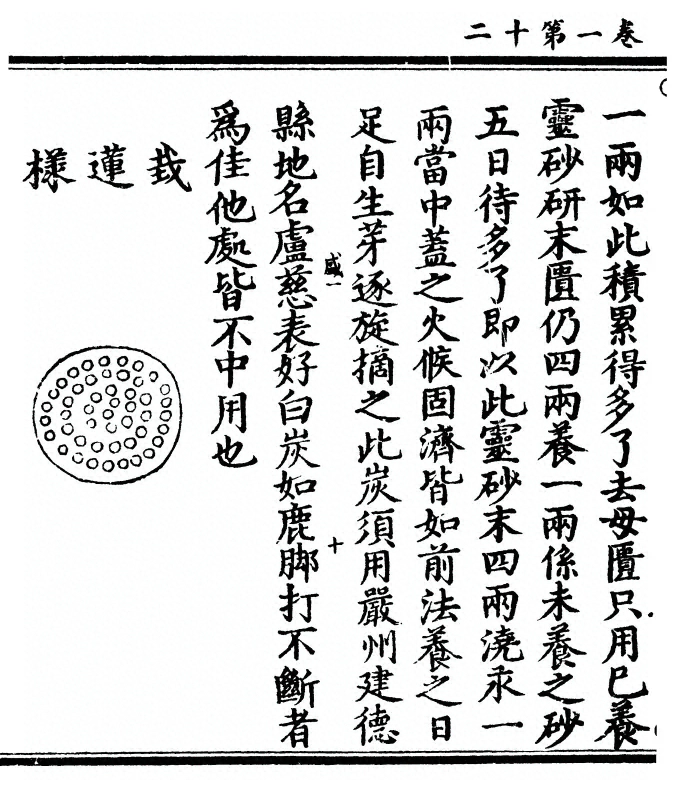 卷一第十二
一兩如此積累得多了去母匱只用已養
靈砂研末匱仍四兩養一兩係未養之砂
五日待多了即以此靈砂末四兩澆汞一
兩當中蓋之火候固濟皆如前法養之日
足自生芽逐旋摘之此炭須用嚴州建德
咸一
十
縣地名盧慈表好白炭如鹿脚打不斷者
為佳他處皆不中用也
栽蓮樣